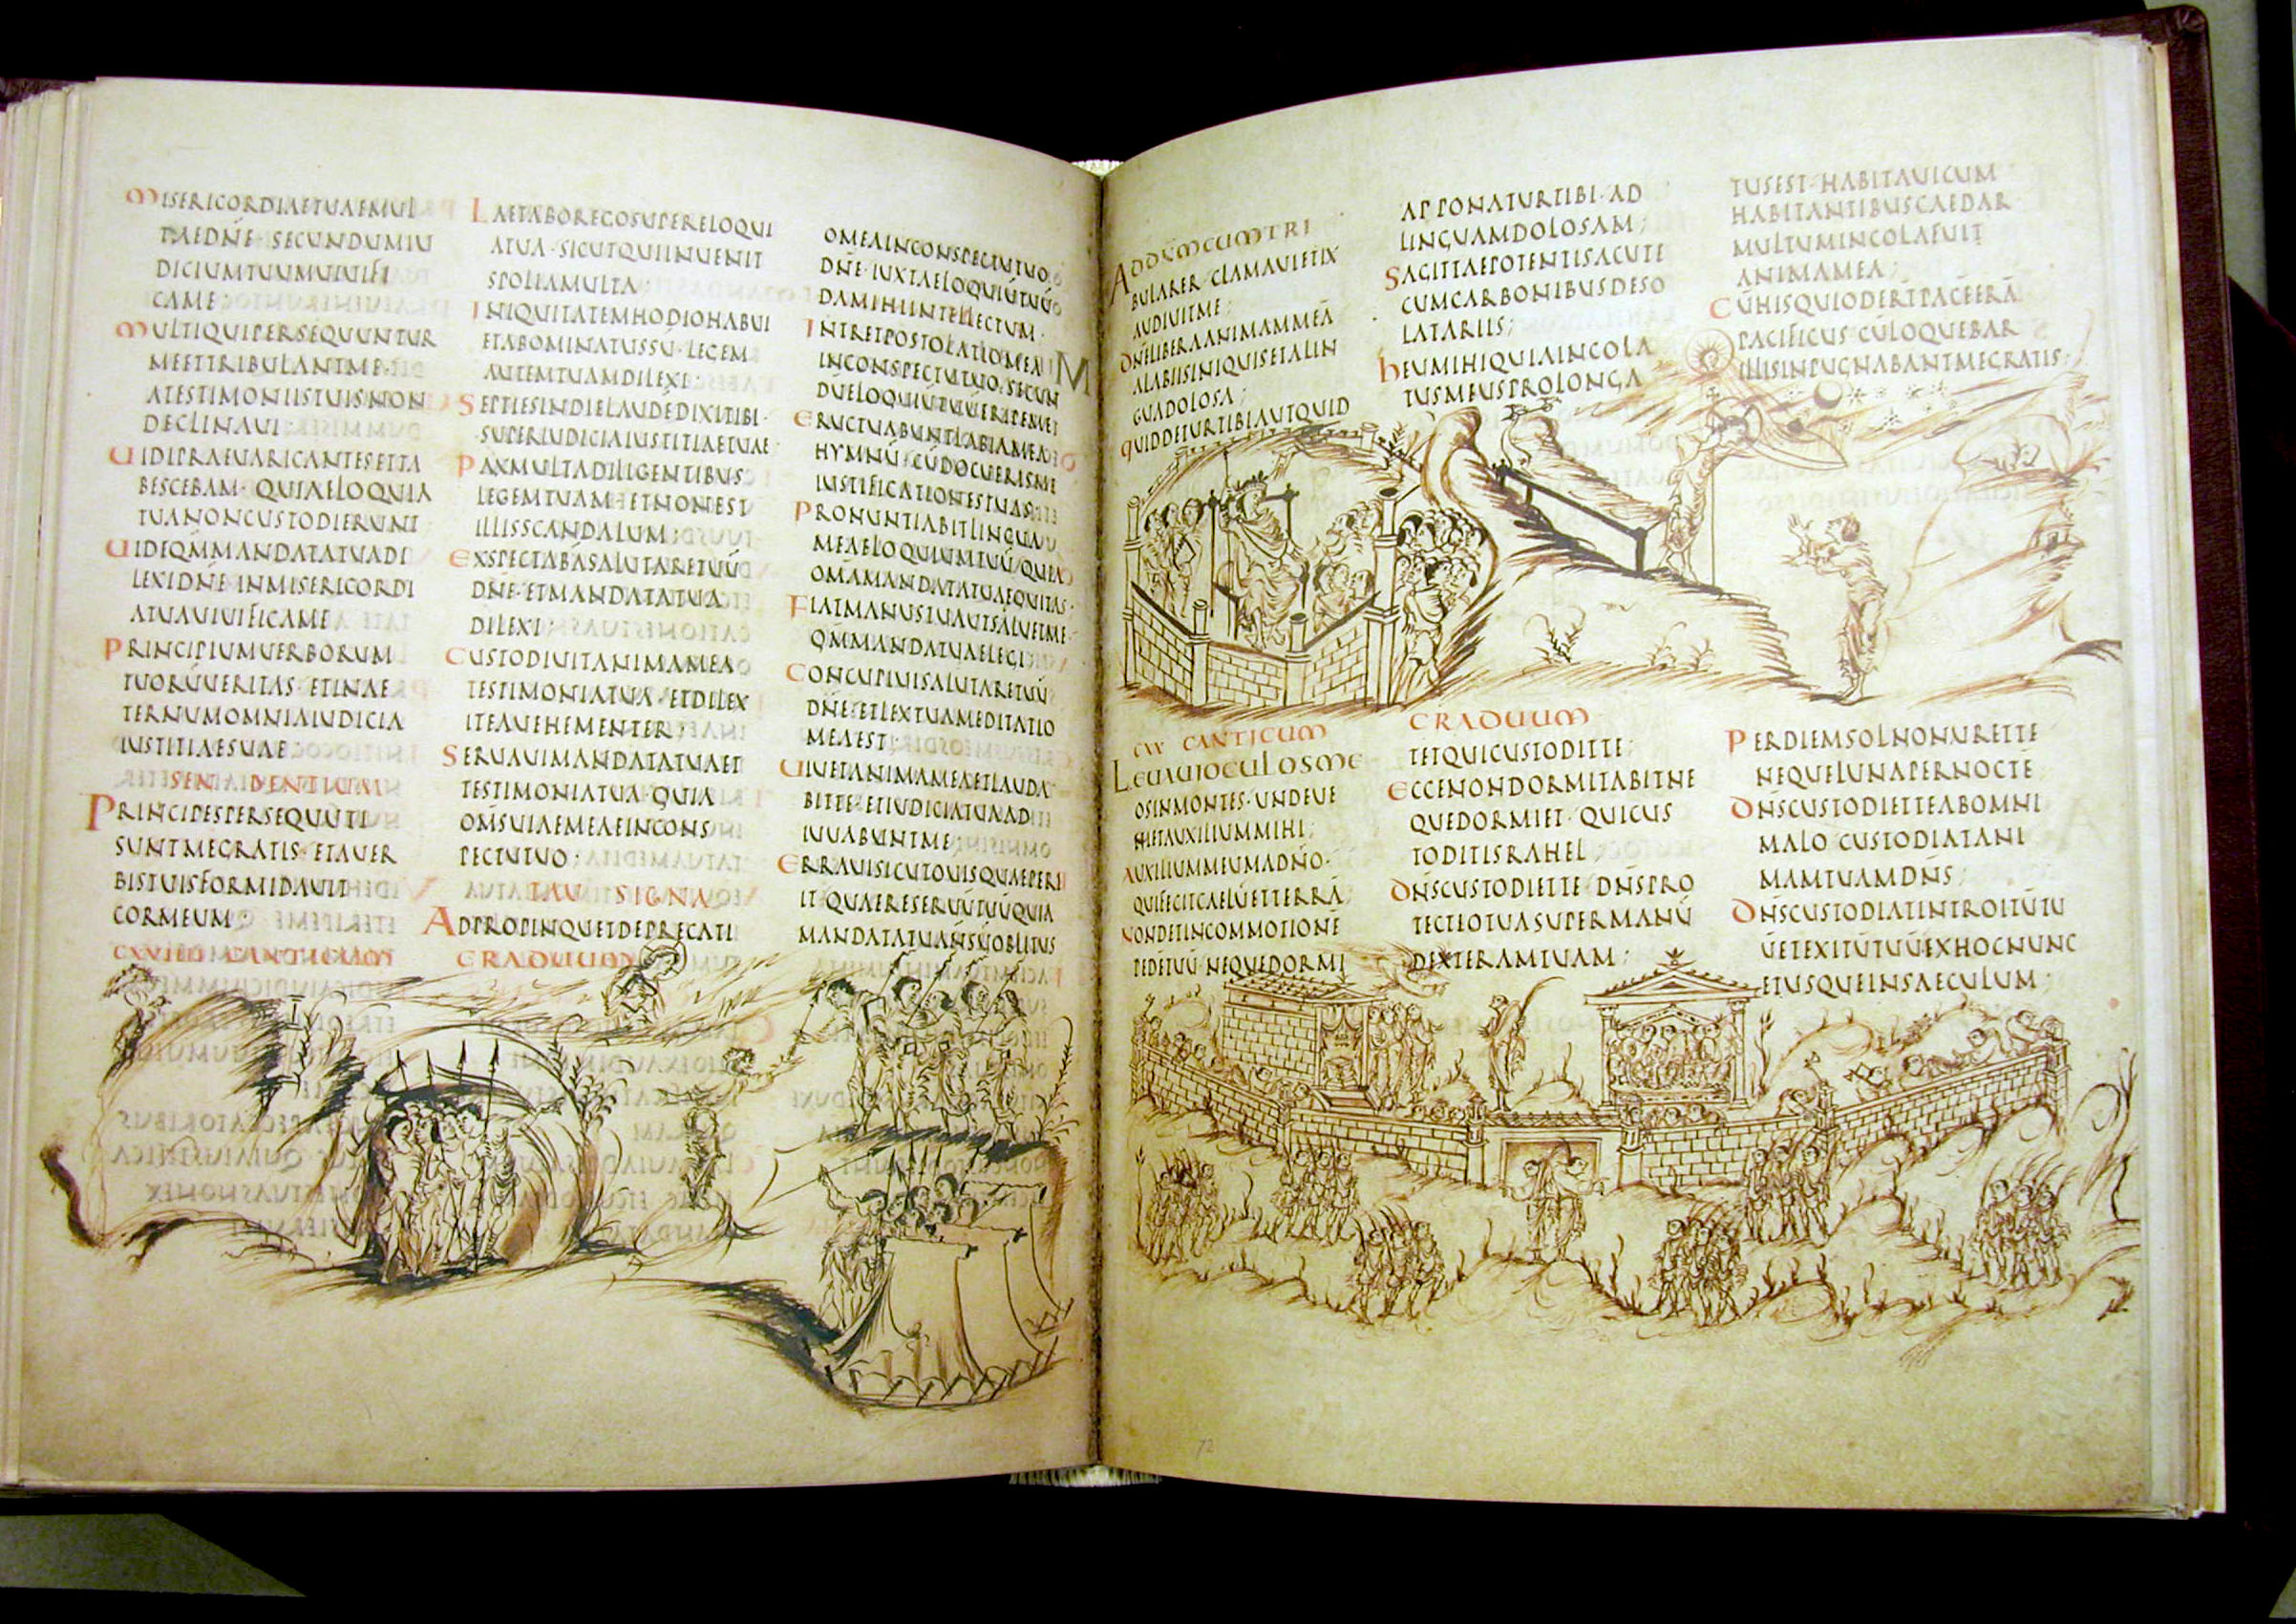 MISERICORDIAETUAEMUL
TAEDNE·SECUNDUMIU
DICIUMTUUMUIUIFI
CAME:
MULTIQUIPERSEQUUNTUR
MEETTRIBULANTME·
ATESTIMONIISTUISNON
DECLINAUI:
UIDIPRAEUARICANTESETTA
BESCEBAM·QUIAELOQUIA
TUANONCUSTODIERUNT
UIDEQMMANDATATUADI
LEXIDNE·INMISERICORDI
ATUAUIUIFICAME
PRINCIPIUMUERBORUM
TUORUUERITAS·ETINAE
TERNUMOMNIAIUDICIA
IUSTITIAESUAE:
SEN DENTIUM
PRINCIPESPERSEQUUTI
SUNTMEGRATIS·ETAUER
BISTUISFORMIDAUIT
CORMEUM:
CXVIIII CANTICUM
LAETABOREGOSUPERELOQUI
ATUA·SICUTQUIINUENIT
SPOLIAMULTA:
INIQUITATEMHODIOHABUI
ETABOMINATUSSU·LEGEM
AUTEMTUAMDILEXI:
SEPTIESINDIELAUDEDIXITIBI·
SUPERIUDICIAIUSTITIAETUAE·
PAXMULTADILIGENTIBUS
LEGEMTUAM·ETNONEST
ILLISSCANDALUM:
EXSPECTABASALUTARETUU
DNE·ETMANDATATUA
DILEXI:
CUSTODIUITANIMAMEA
TESTIMONIATUA·ETDILEX
ITEAUEHEMENTER:
SERUAUIMANDATATUAET
TESTIMONIATUA·QUIA
OMSUIAEMEAEINCONS
PECTUTUO:
TAU SIGNA
ADPROPINQUETDEPRECATI
GRADUUM
OMEAINCONSPECTUTUO
DNE·IUXTAELOQUIUTUU
DAMIHIINTELLECTUM·
INTRETPOSTOLATIOMEA
INCONSPECTUTUO·SECUN
DUELOQUIUTUUERIPEME:
ERUCTUABUNTLABIAMEA
HYMNU·CUDOCUERISME
IUSTIFICATIONESTUAS
PRONUNTIABITLINGUA
MEAELOQUIUMTUU·QUIA
OMAMANDATATUAEQUITAS·
FIATMANUSTUAUTSALUETME·
QMMANDATUAELEGI:
CONCUPIUISALUTARETUU
DNE·ETLEXTUAMEDITATIO
MEAEST:
UIUETANIMAMEAETLAUDA
BITTE·ETIUDICIATUAAD
IUUABUNTME:
ERRAUISICUTOUISQUAEPERI
IT·QUAERESERUUTUUQUIA
MANDATATUANSUOBLITUS
M
ADDNMCUMTRI
BULARER·CLAMAUIETEX
AUDIUITME:
DNELIBERAANIMAMMEA
ALABIISINIQUISETALIN
GUADOLOSA;
QUIDDETURTIBIAUTQUID
APPONATURTIBI·AD
LINGUAMDOLOSAM;
SAGITTAEPOTENTISACUTE
CUMCARBONIBUSDESO
LATARIIS;
HEUMIHIQUIAINCOLA
TUSMEUSPROLONGA
TUSEST·HABITAUICUM
HABITANTIBUSCAEDAR·
MULTUMINCOLAFUIT
ANIMAMEA;
CUHISQUIODERTPACEERA
PACIFICUS·CULOQUEBAR
ILLISINPUGNABANTMEGRATIS;
CXX CANTICUM
LEUAUIOCULOSME
OSINMONTES·UNDEUE
NIETAUXILIUMMIHI;
AUXILIUMMEUMADNO·
QUIFECITCAELUETTERRA
NONDETINCOMMOTIONE
PEDETUU·NEQUEDORMI
GRADUUM
TETQUICUSTODITTE:
ECCENONDORMITABITNE
QUEDORMIET·QUICUS
TODITISRAHEL;
DNSCUSTODIETTE·DNSPRO
TECTIOTUASUPERMANU
DEXTERAMTUAM:
PERDIEMSOLNONURETTE
NEQUELUNAPERNOCTE
DNSCUSTODIETTEABOMNI
MALO·CUSTODIATANI
MAMTUAMDNS;
DNSCUSTODIATINTROITUTU
UETEXITUTUUEXHOCNUNC
ETUSQUEINSAECULUM·
72